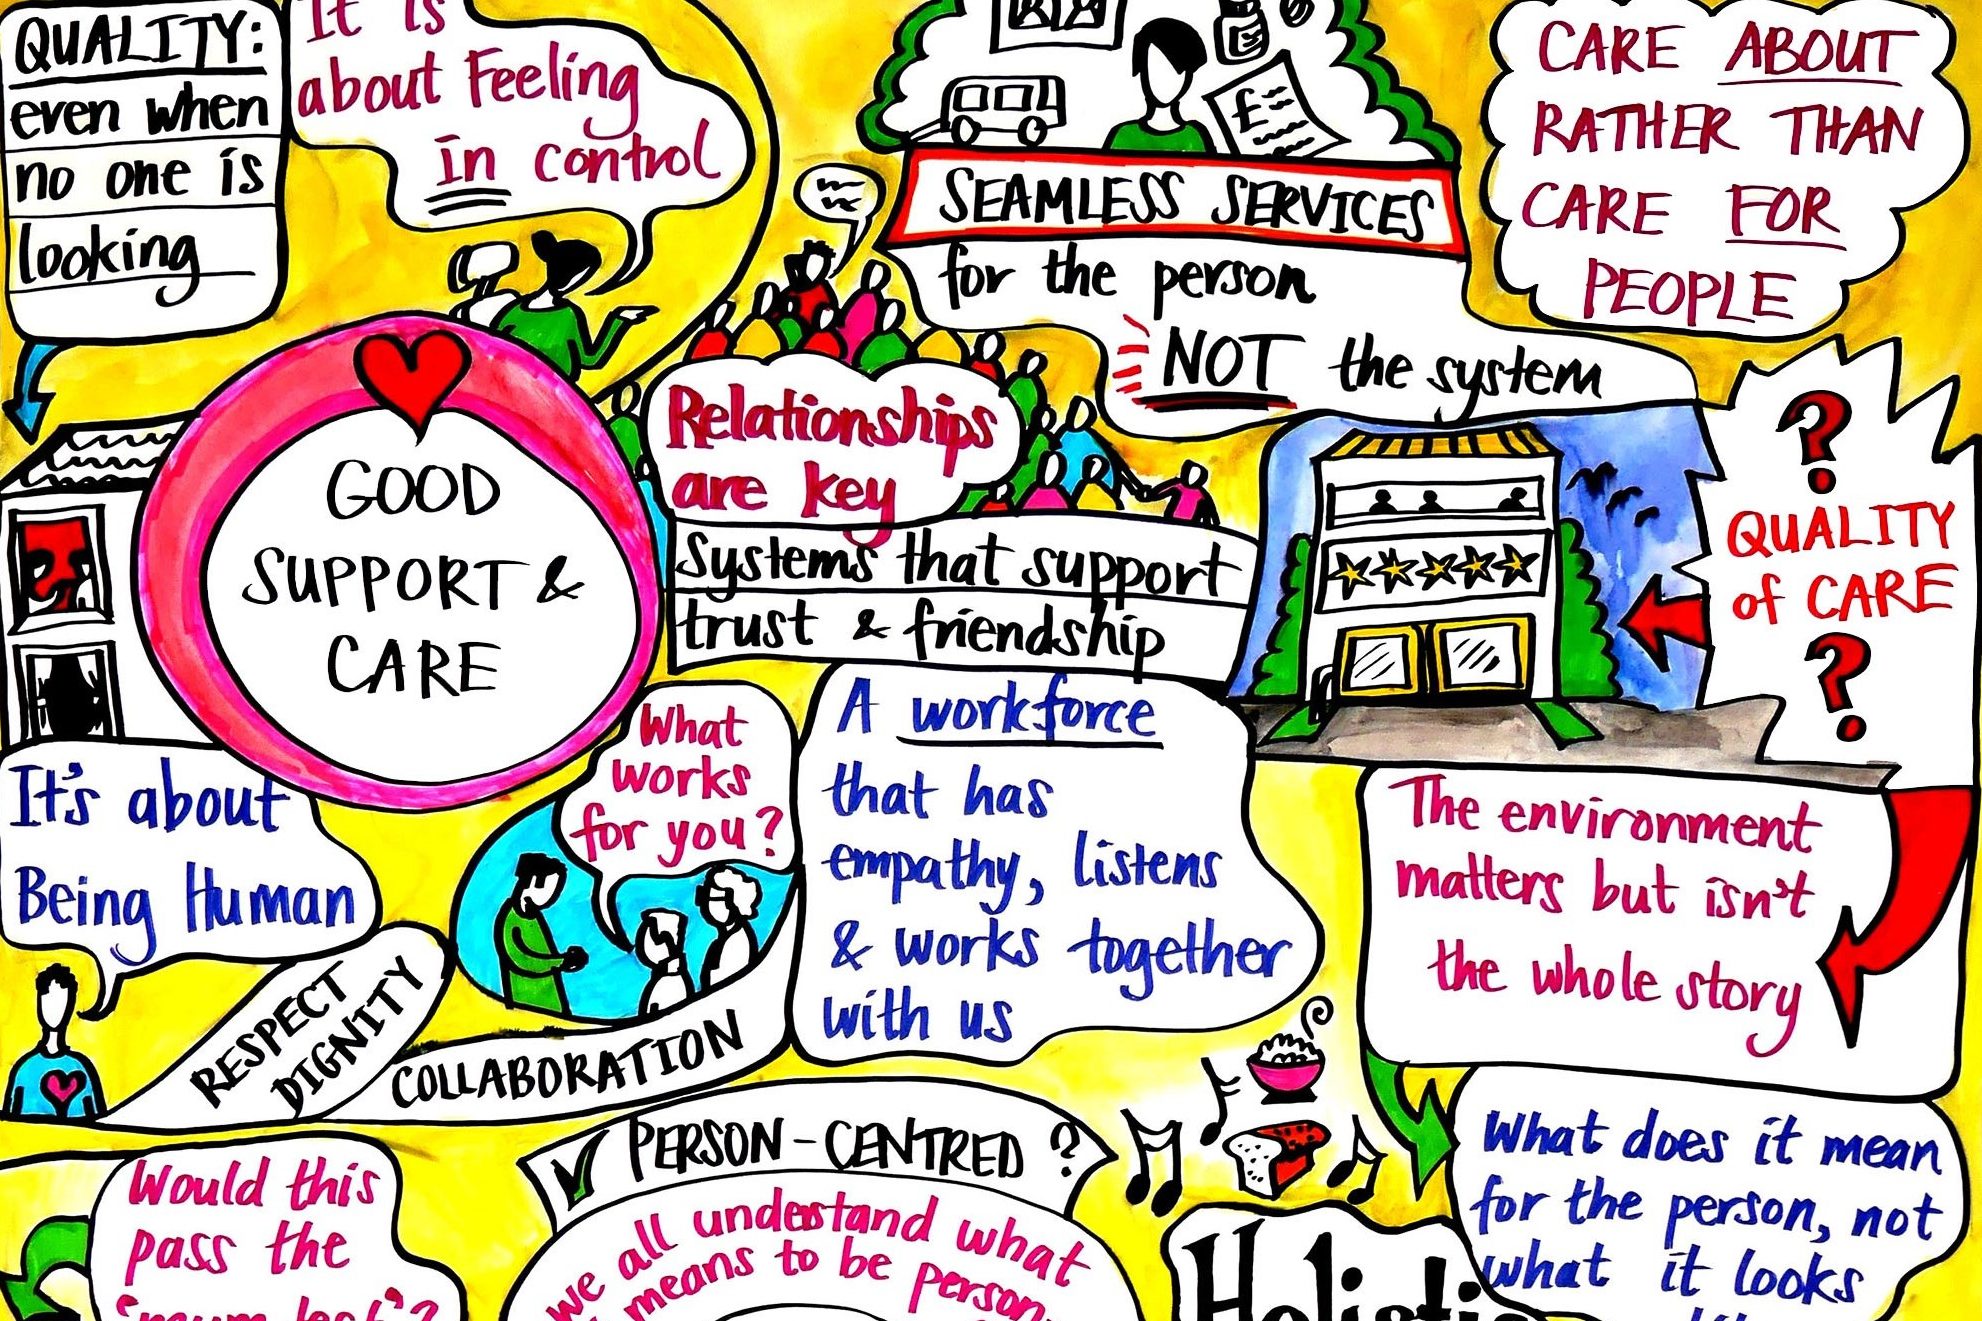 QUALITY:
even when
no one is
looking
It is
about Feeling
in control
SEAMLESS SERVICES
for the person
NOT the system
CARE ABOUT
RATHER THAN
CARE FOR
PEOPLE
GOOD
SUPPORT &
CARE
Relationships
are key
Systems that support
trust & friendship
?
QUALITY
of CARE
?
It's about
Being Human
What
works
for you?
A workforce
that has
empathy, listens
& works together
with us
The environment
matters but isn't
the whole story
RESPECT
DIGNITY
COLLABORATION
PERSON-CENTRED?
we all understand what
means to be person
Would this
pass the
What does it mean
for the person, not
what it looks
Holistic
£